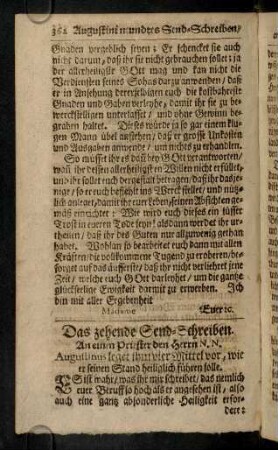 362 Augustini nundtes Send-Schreiben/
Gnaden vergeblich seyen: Er schencket sie auch
nicht darum/ daß ihr sie nicht gebrauchen sollet: ja
der allerheiligste GOtt mag und kan nicht die
Verdiensten seines Sohns darzu anwenden/ daß
er in Ansehung derenselbigen euch die kostbahriste
Gnaden und Gaben verleyhe/ damit ihr sie zu be-
werckstelligen unterlasset/ und ohne Gewinn be-
graben haltet. Dieses wurde ja so gar einem klu-
gen Mann übel anstehen/ daß er grosse Unkosten
und Ausgaben anwende/ um nichts zu erhandlen.
So müsset ihr es daß bey GOtt verantworten/
wañ ihr dessen allerheiligsten Willen nicht erfüllet/
und ihr sollet euch dergestalt betragen/ daß ihr das je-
nige/ so er euch befihlt ins Werck stellet/ und nütz-
lich anleget/ damit ihr euer Leben/ seinen Absichten ge-
mäß einrichtet: Wie wird euch dieses ein süsser
Trost in eueren Todt seyn! alsdann werdet ihr ur-
theilen/ daß ihr des Guten nur allzuwenig gethan
habet. Wohlan so bearbeitet euch dann mit allen
Kräften/ die vollkommene Tugend zu eroberen/ be-
sorget auf das äusserste/ daß ihr nicht verliehret jene
Zeit/ welche euch GOtt darleyhet/ um die gantz
glückseelige Ewigkeit darmit zu erwerben. Ich
bin mit aller Ergebenheit
Madame Euer ꝛc.
Das zehende Send-Schreiben.
An einen Priester den Herrn N. N.
Augustinus leget ihm vier Mittel vor, wie
er seinen Stand heiliglich führen solle.
ES ist wahr/ was ihr mir schreibet/ das nemlich
euer Beruff so hoch als er angesehen ist/ also
auch eine gantz absonderliche Heiligkeit erfor-
dere: